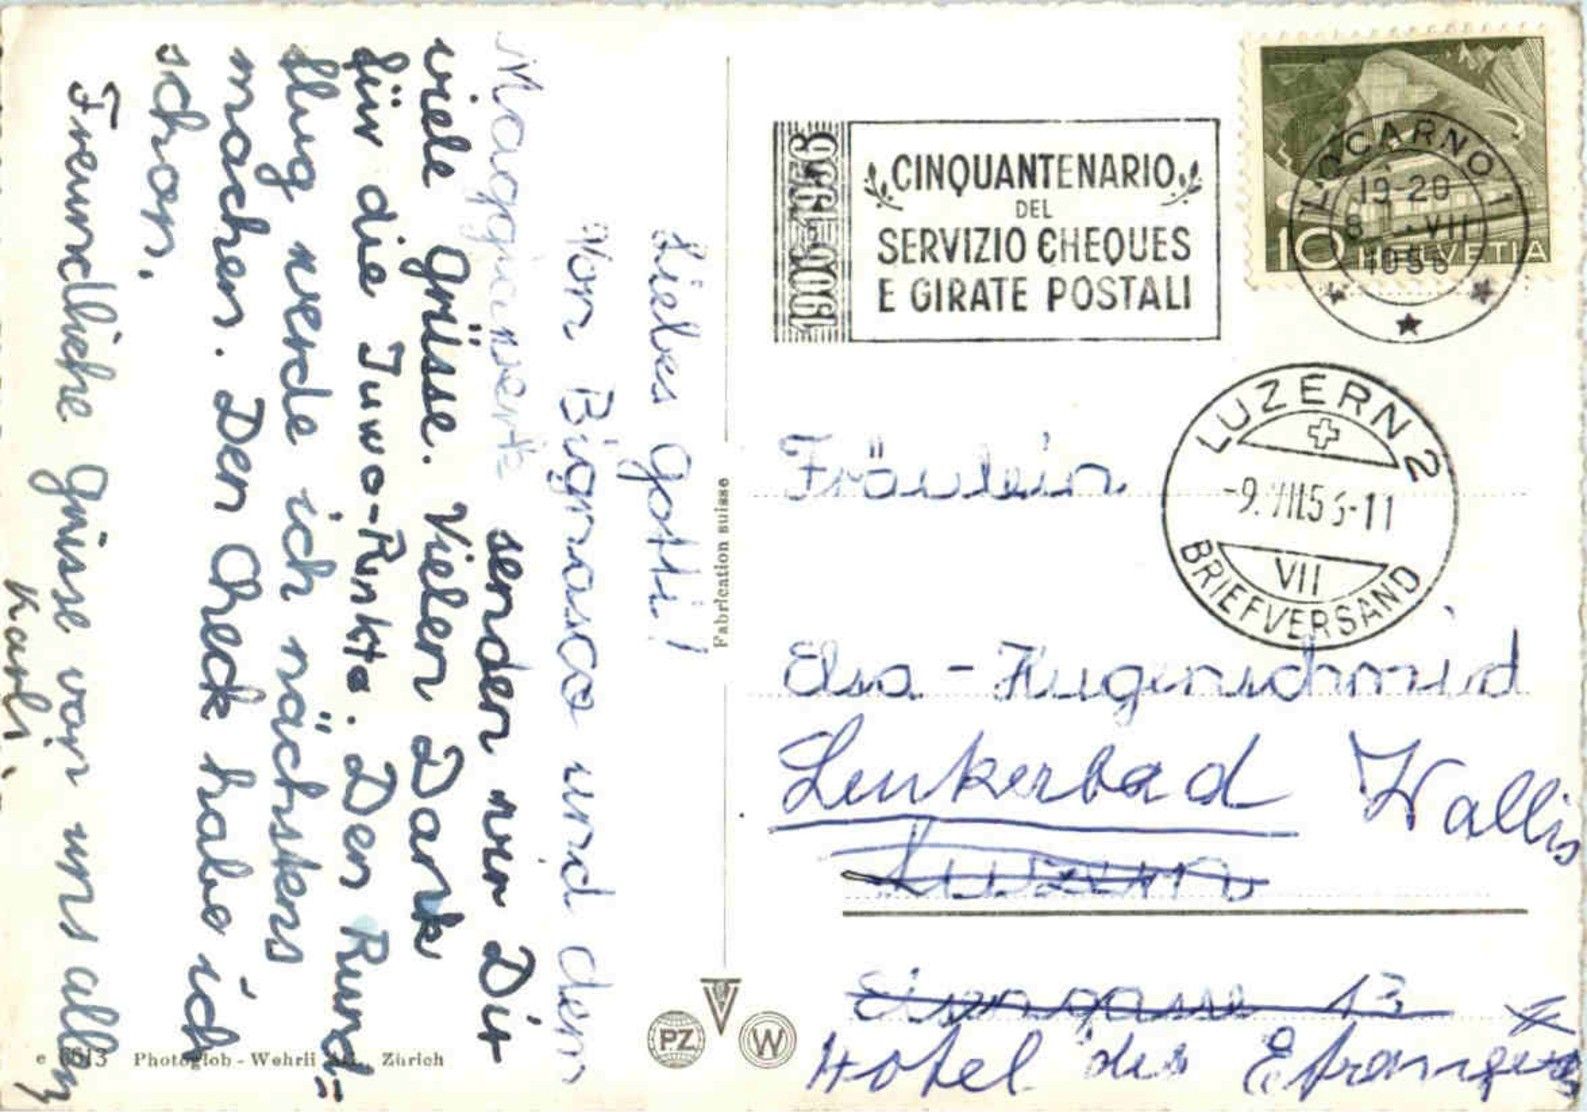 Liebes Gotti!
Von Bignasco und dem
Maggiawerk senden wir Dir
viele Grüsse. Vielen Dank
für die Juwo-Punkte. Den Rund=
flug werde ich nächstens
machen. Den Check habe ich
schon.
Freundliche Grüsse von uns allen
Karli.
e 6613 Photoglob-Wehrli A.G., Zürich
Fabrication suisse
PZ
W
1906-1956
CINQUANTENARIO
DEL
SERVIZIO CHEQUES
E GIRATE POSTALI
LOCARNO 1
19-20
8. VII
1956
10 HELVETIA
LUZERN 2
-9.VII.56-11
VII
BRIEFVERSAND
Fräulein
Elsa-Hugenschmid
Leukerbad Wallis
Luzern
Eisengasse 13
Hotel des Etrangers